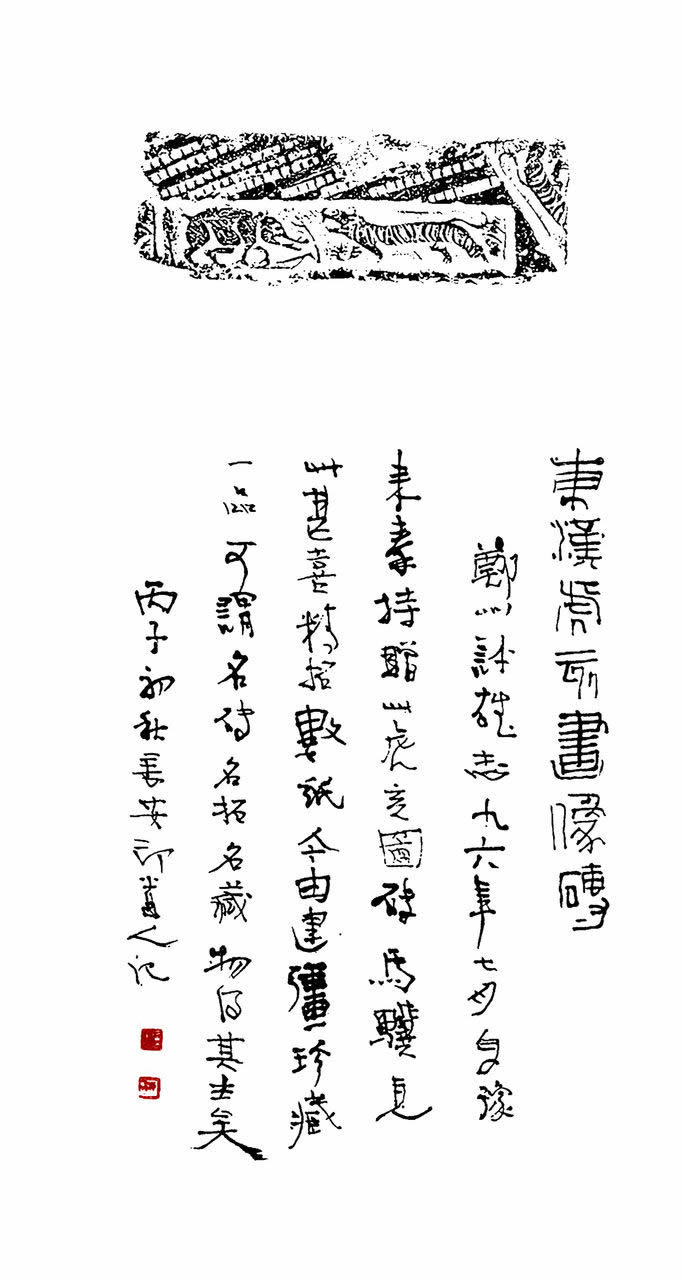 東漢虎畫像磚
鄭州許雄志九六年七月自豫
來秦持贈此虎圖磚馬驥見
此甚喜精拓數紙今由建疆珍藏
一品可謂名磚名拓名藏物得其主矣
丙子初秋長安印人記